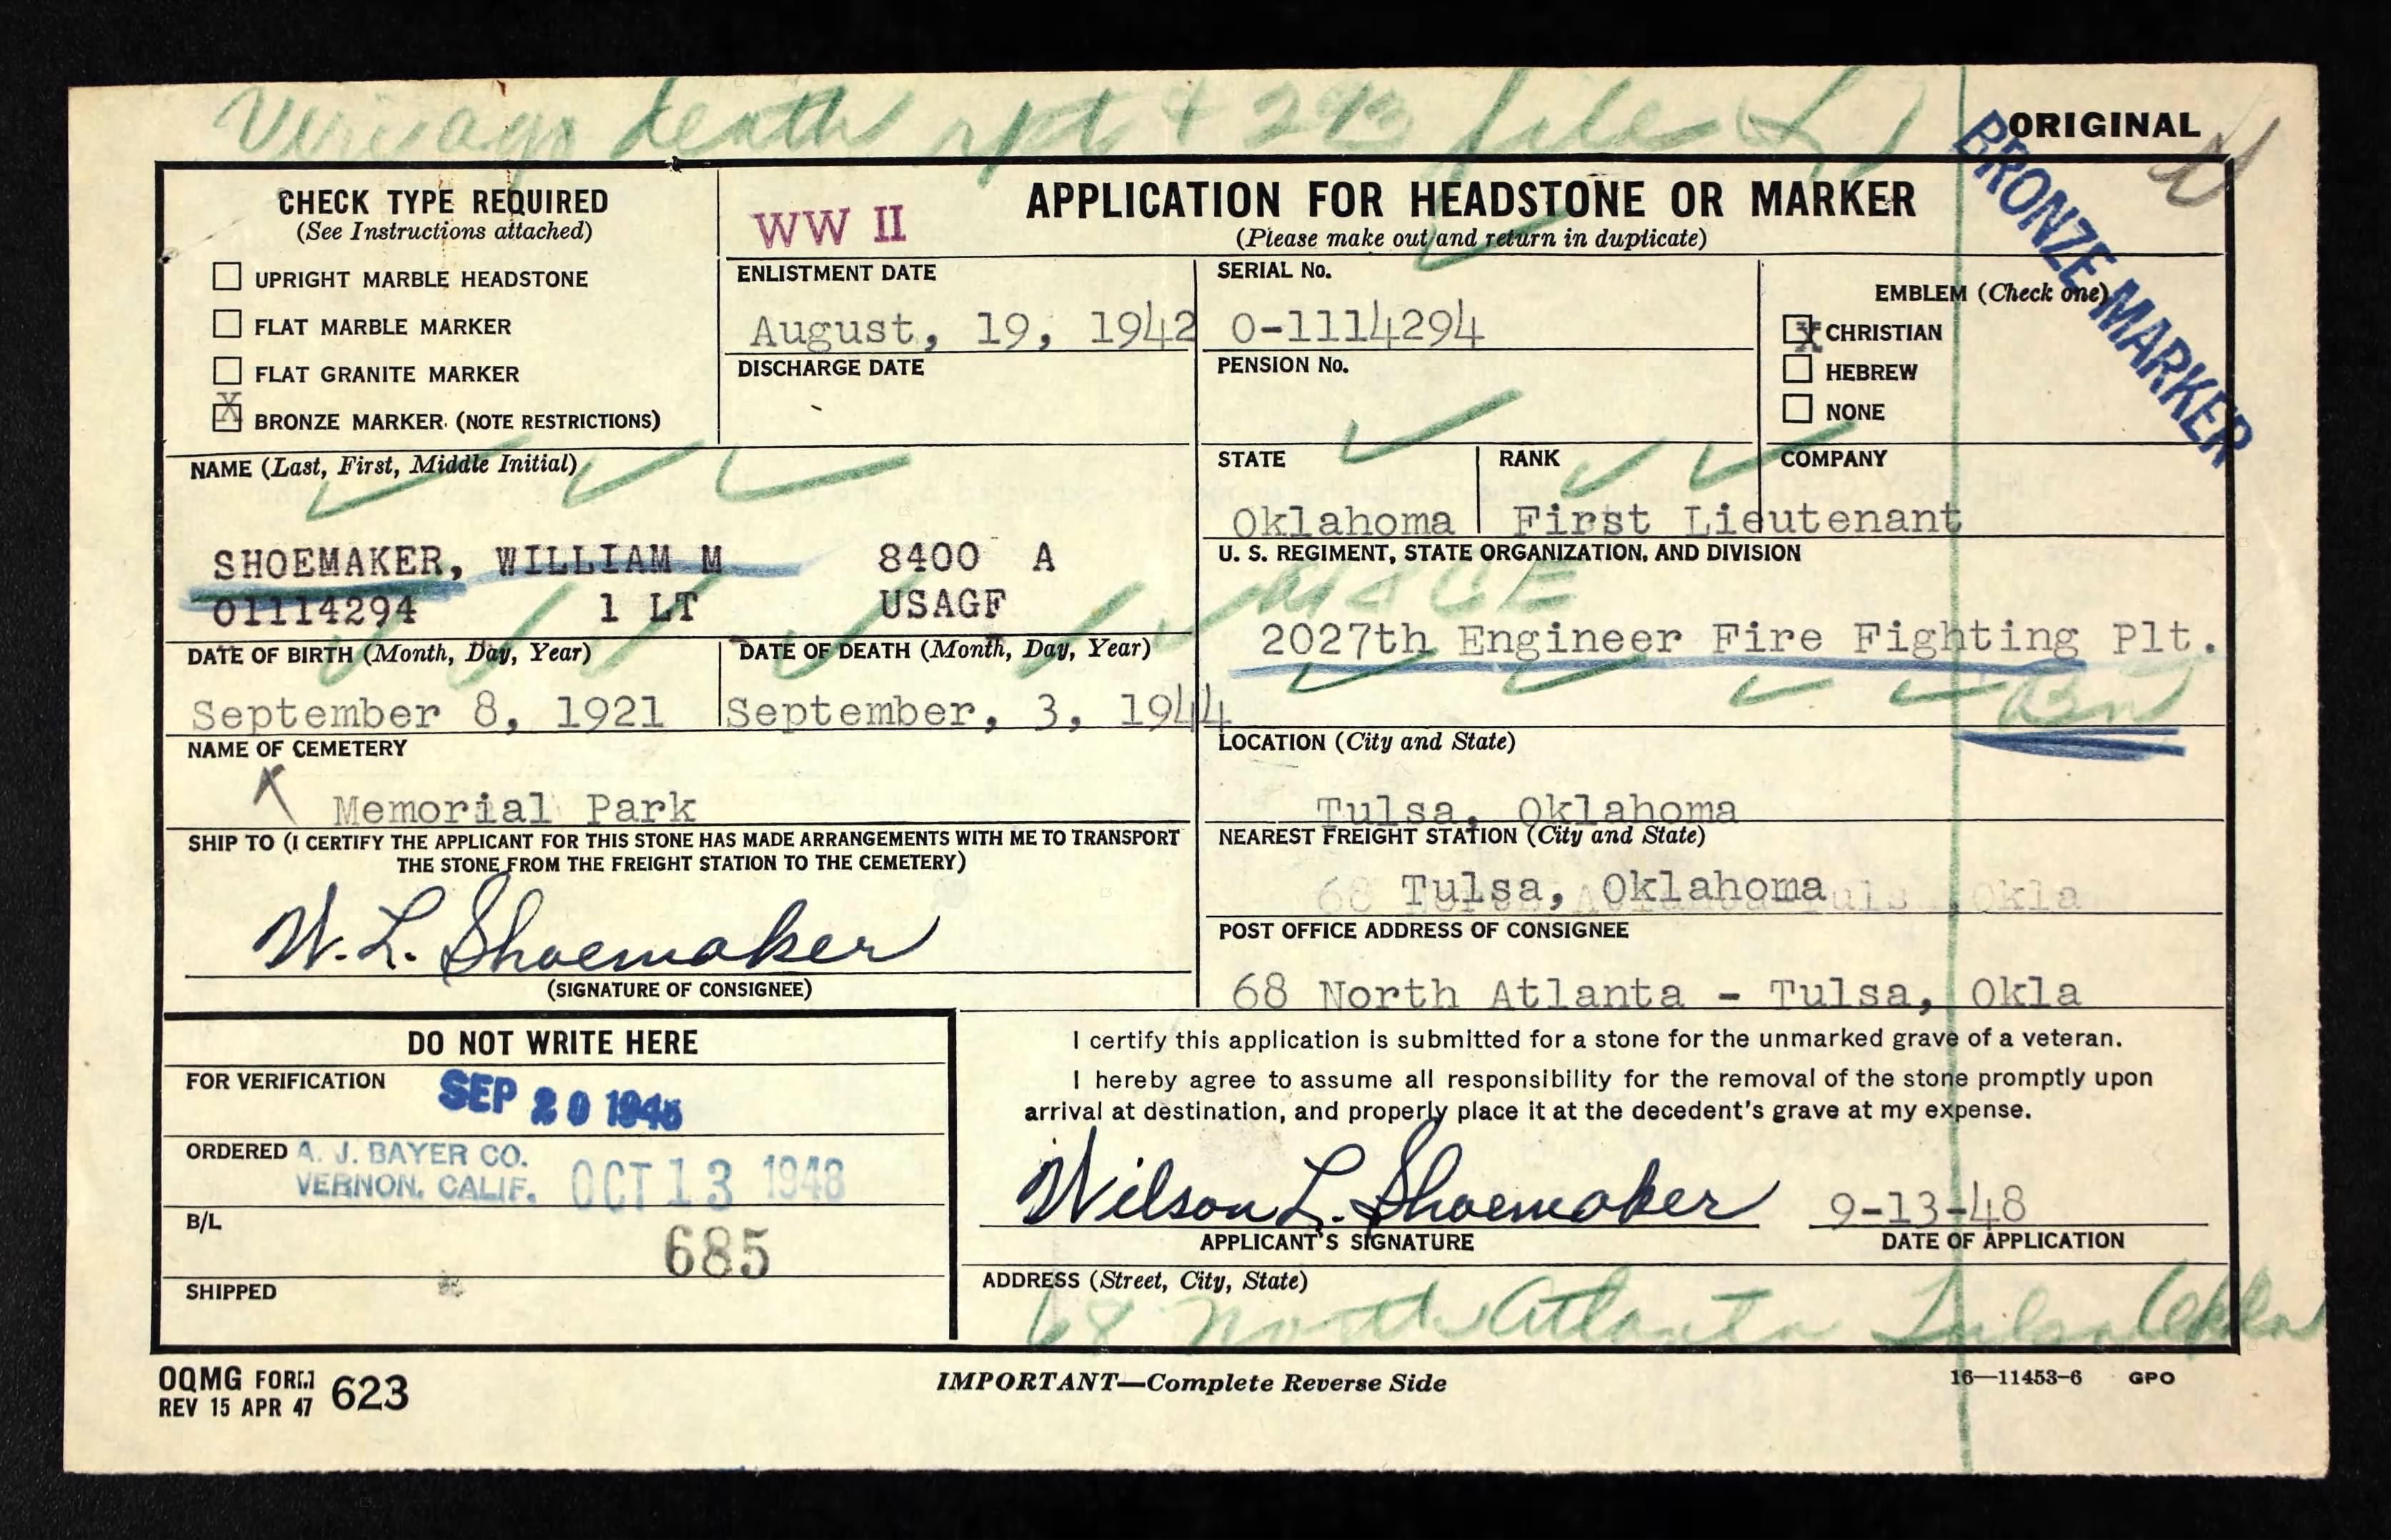 death rpt + 293 file
ORIGINAL
BRONZE MARKER
CHECK TYPE REQUIRED
(See Instructions attached)
UPRIGHT MARBLE HEADSTONE
FLAT MARBLE MARKER
FLAT GRANITE MARKER
X BRONZE MARKER (NOTE RESTRICTIONS)
WW II
APPLICATION FOR HEADSTONE OR MARKER
(Please make out and return in duplicate)
ENLISTMENT DATE
August, 19, 1942
DISCHARGE DATE
SERIAL No.
O-1114294
PENSION No.
EMBLEM (Check one)
X CHRISTIAN
HEBREW
NONE
NAME (Last, First, Middle Initial)
SHOEMAKER, WILLIAM M 8400 A
01114294 1 LT USAGF
STATE
Oklahoma
RANK
First Lieutenant
COMPANY
U. S. REGIMENT, STATE ORGANIZATION, AND DIVISION
2027th Engineer Fire Fighting Plt.
DATE OF BIRTH (Month, Day, Year)
September 8, 1921
DATE OF DEATH (Month, Day, Year)
September, 3, 1944
NAME OF CEMETERY
Memorial Park
LOCATION (City and State)
Tulsa, Oklahoma
SHIP TO (I CERTIFY THE APPLICANT FOR THIS STONE HAS MADE ARRANGEMENTS WITH ME TO TRANSPORT
THE STONE FROM THE FREIGHT STATION TO THE CEMETERY)
W. L. Shoemaker
(SIGNATURE OF CONSIGNEE)
NEAREST FREIGHT STATION (City and State)
Tulsa, Oklahoma
POST OFFICE ADDRESS OF CONSIGNEE
68 North Atlanta - Tulsa, Okla
DO NOT WRITE HERE
FOR VERIFICATION
SEP 20 1948
ORDERED
A. J. BAYER CO.
VERNON, CALIF.
OCT 13 1948
B/L
685
SHIPPED
I certify this application is submitted for a stone for the unmarked grave of a veteran.
I hereby agree to assume all responsibility for the removal of the stone promptly upon
arrival at destination, and properly place it at the decedent's grave at my expense.
Wilson L. Shoemaker
APPLICANT'S SIGNATURE
9-13-48
DATE OF APPLICATION
ADDRESS (Street, City, State)
68 North Atlanta Tulsa Okla
OQMG FORM 623
REV 15 APR 47
IMPORTANT—Complete Reverse Side
16—11453-6 GPO